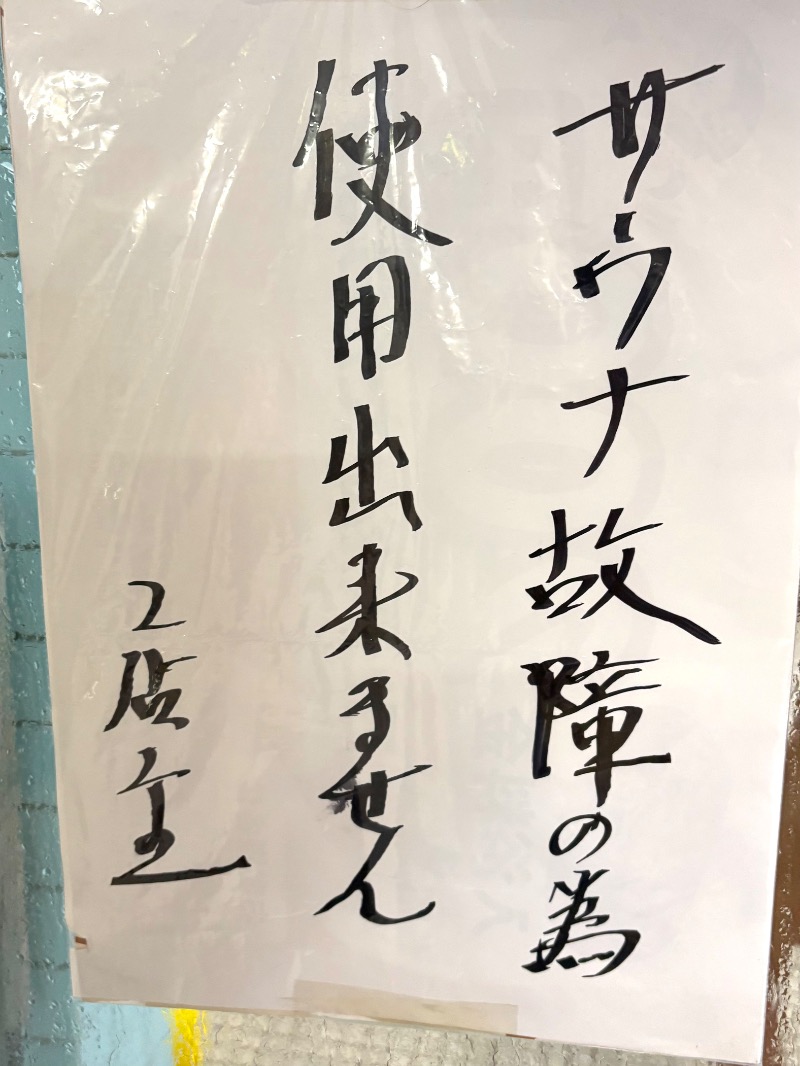 サウナ故障の為
使用出来ません
店主